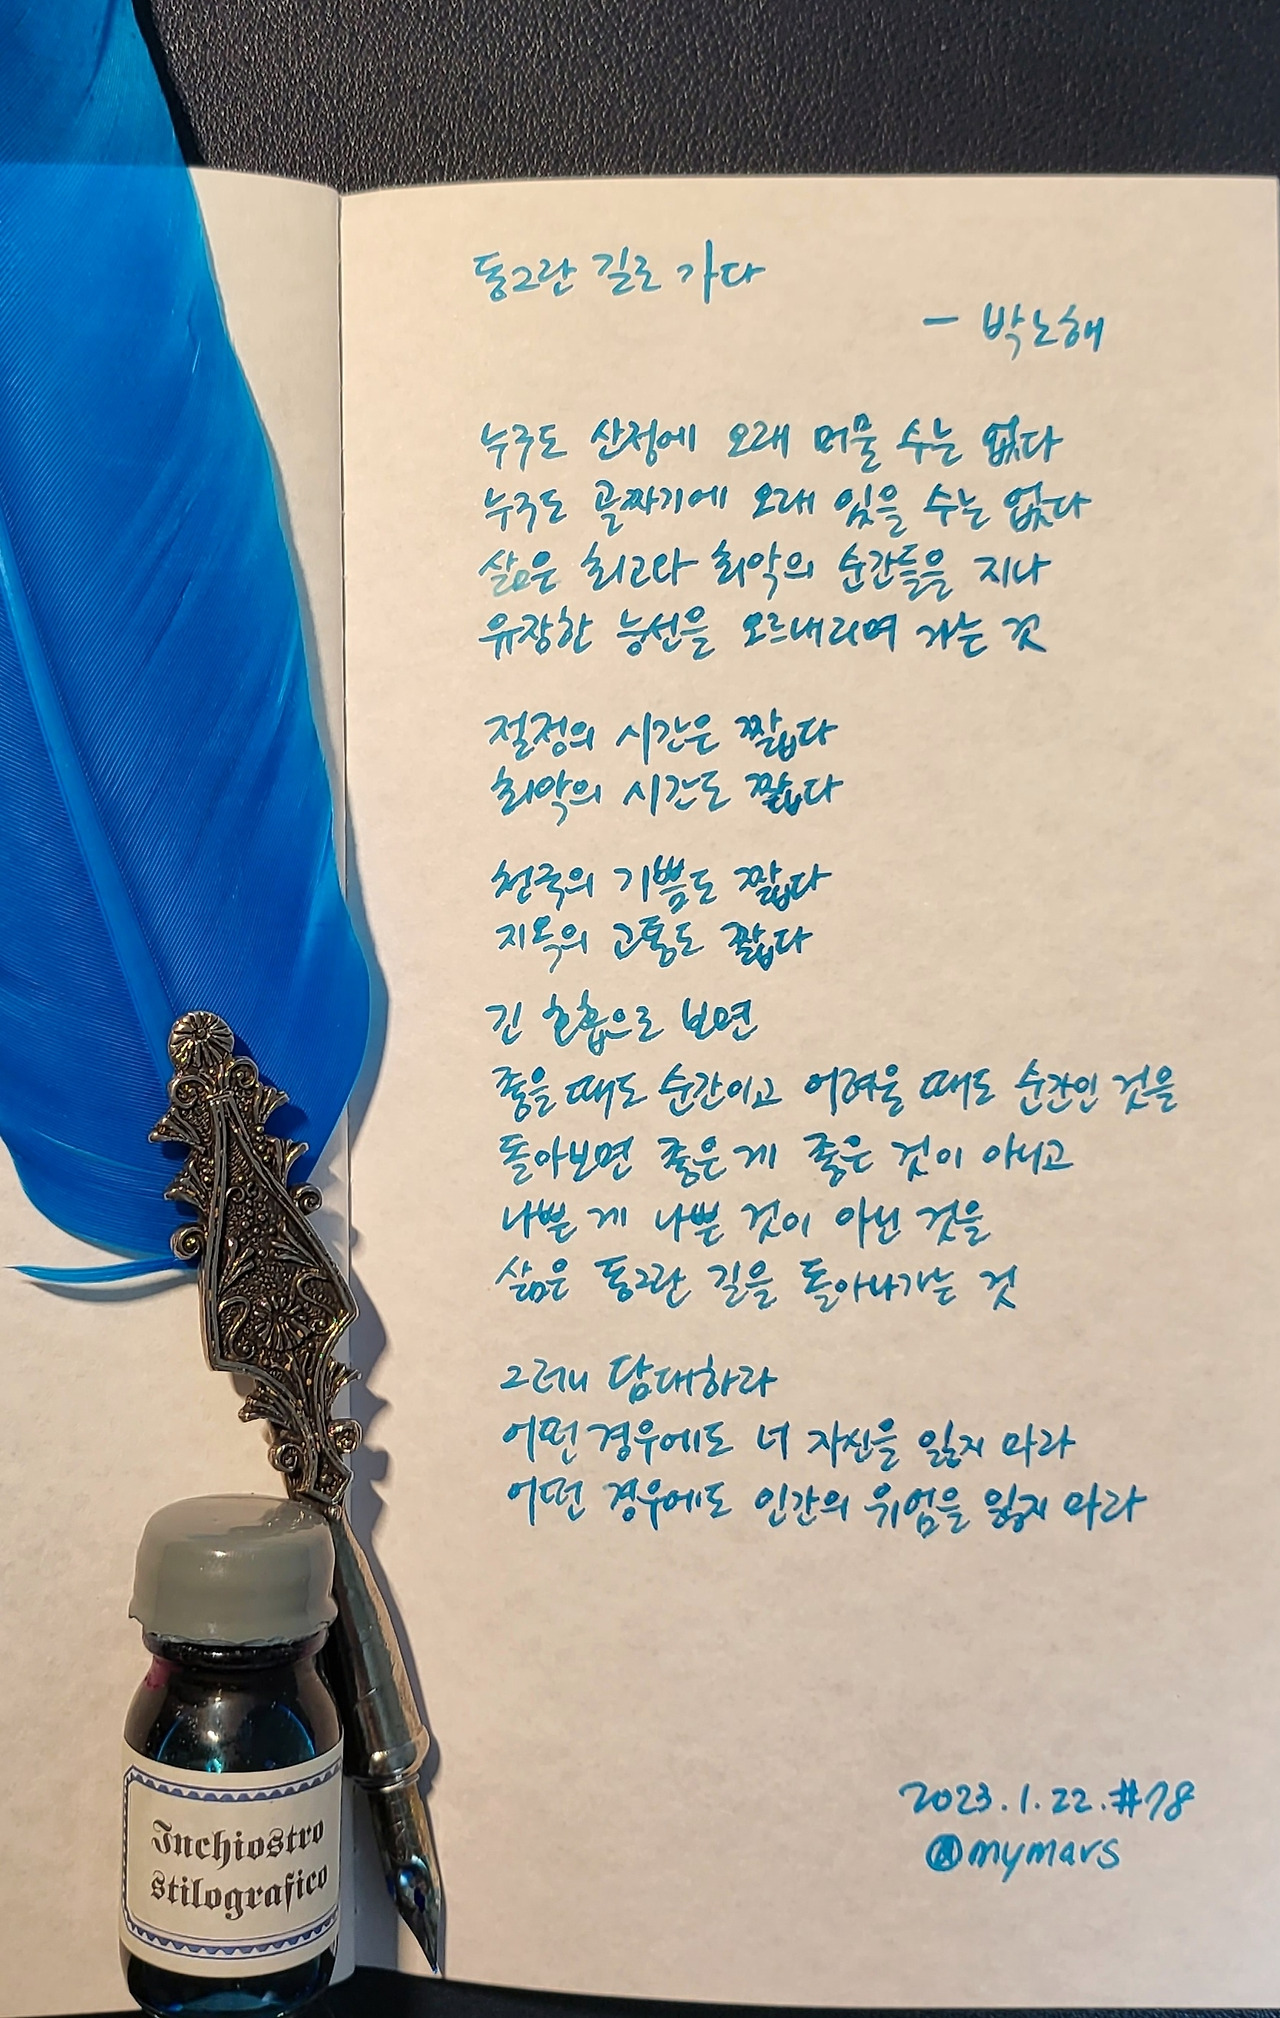 동그란 길로 가다
- 박노해
누구도 산정에 오래 머물 수는 없다
누구도 골짜기에 오래 있을 수는 없다
삶은 최고와 최악의 순간들을 지나
유장한 능선을 오르내리며 가는 것
절정의 시간은 짧다
최악의 시간도 짧다
천국의 기쁨도 짧다
지옥의 고통도 짧다
긴 호흡으로 보면
좋을 때도 순간이고 어려울 때도 순간인 것을
돌아보면 좋은 게 좋은 것이 아니고
나쁜 게 나쁜 것이 아닌 것을
삶은 동그란 길을 돌아나가는 것
그러니 담대하라
어떤 경우에도 너 자신을 잃지 마라
어떤 경우에도 인간의 위엄을 잃지 마라
2023.1.22.#18
@mymars
Inchiostro
stilografico